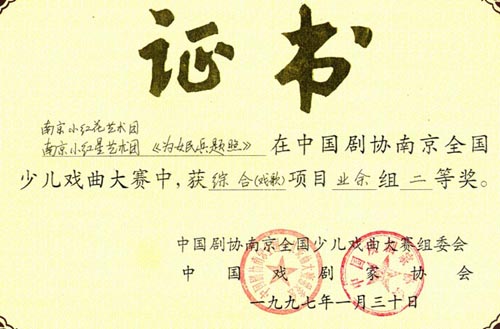 证书
南京小红花艺术团
南京小红星艺术团《为女民兵题照》在中国剧协南京全国
少儿戏曲大赛中,获综合(戏歌)项目业余组二等奖。
中国剧协南京全国少儿戏曲大赛组委会
中国戏剧家协会
一九九七年一月三十日